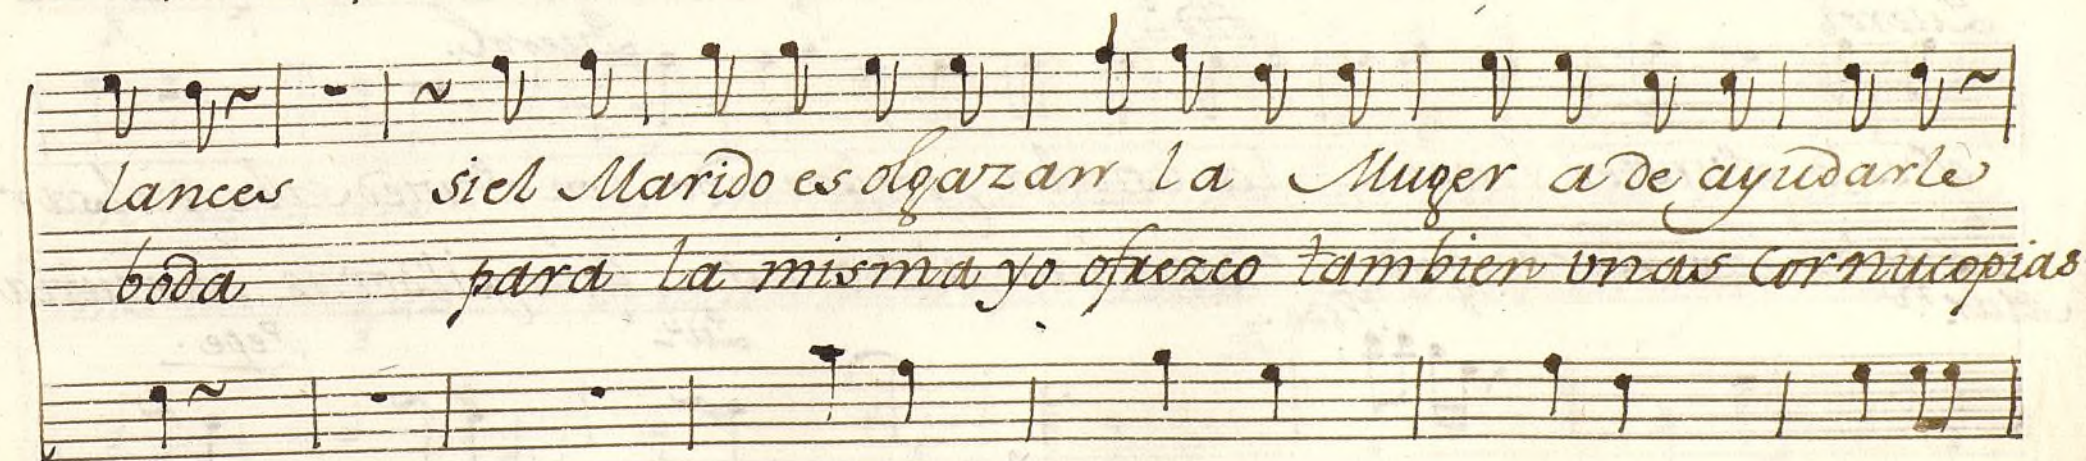 lances siel Marido es olgazan la Muger a de ayudarle
boda para la misma yo ofrezco tambien vnas Cornucopias